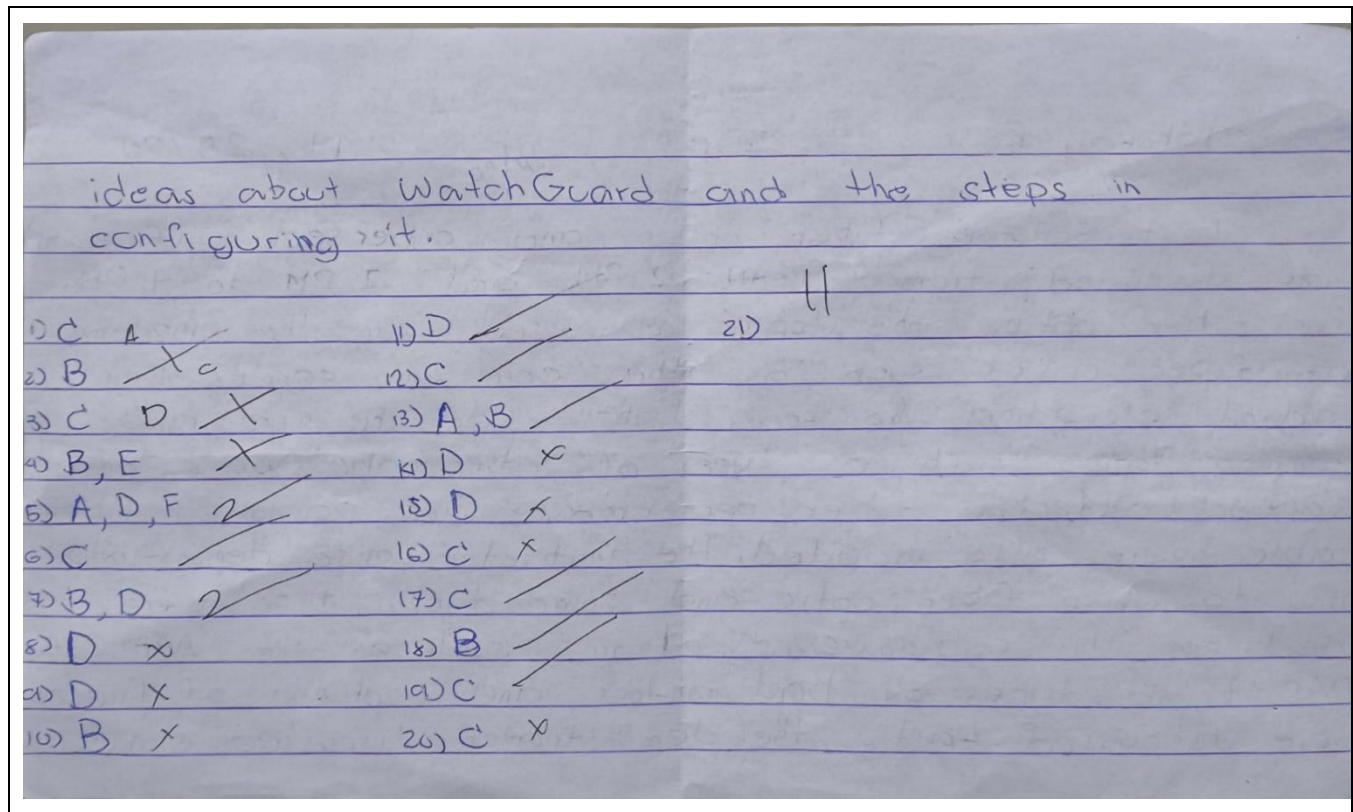 ideas about WatchGuard and the steps in
configuring it.
11
1) C A
2) B X C
3) C D X
4) B, E X
5) A, D, F 2
6) C
7) B, D 2
8) D X
9) D X
10) B X
11) D
12) C
13) A, B
14) D X
15) D X
16) C X
17) C
18) B
19) C
20) C X
21)